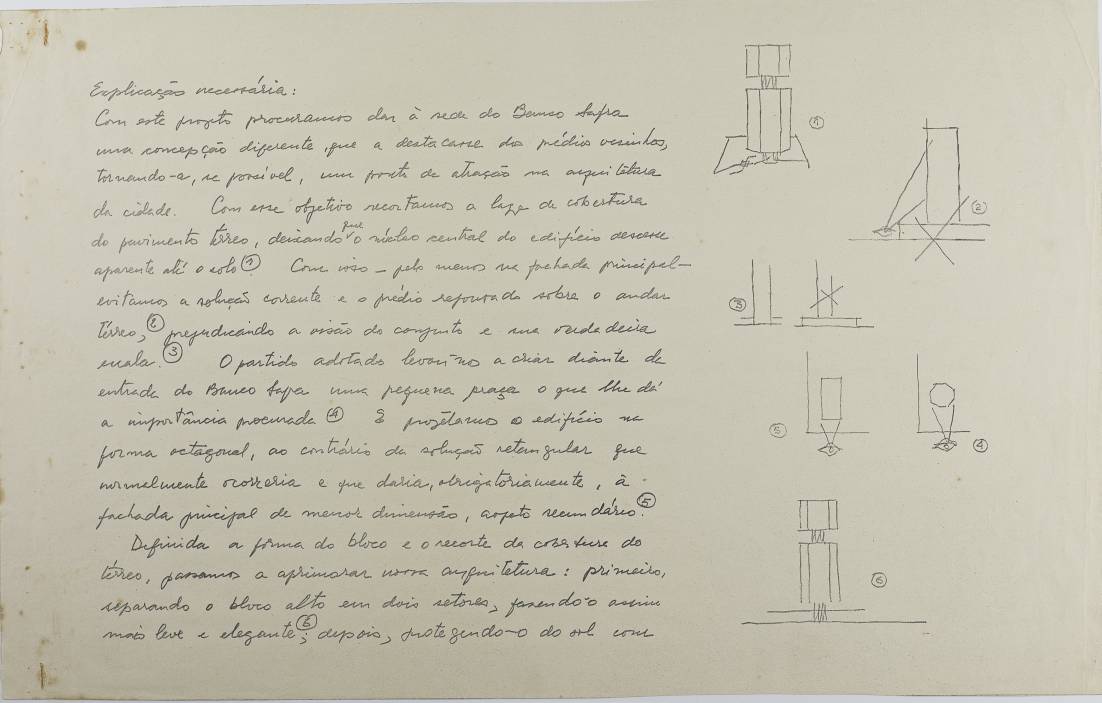 Explicação necessária:
Com este projeto procuramos dar à sede do Banco Safra
uma concepção diferente, que a destacasse dos prédios vizinhos,
tornando-a, se possível, um ponto de atração na arquitetura
da cidade. Com esse objetivo recortamos a laje de cobertura
do pavimento térreo, deixando que o núcleo central do edifício descesse
aparente até o solo ①. Com isso – pelo menos na fachada principal –
evitamos a solução corrente e o prédio repousado sobre o andar
térreo, ② prejudicando a visão do conjunto e sua verdadeira
escala. ③ O partido adotado levou-nos a criar diante da
entrada do Banco Safra uma pequena praça o que lhe dá
a importância procurada ④ E projetamos o edifício na
forma octagonal, ao contrário da solução retangular que
normalmente ocorreria e que daria, obrigatoriamente, à
fachada principal de menor dimensão, aspeto secundário. ⑤
Definida a forma do bloco e o recorte da cobertura do
térreo, passamos a aprimorar nossa arquitetura: primeiro,
separando o bloco alto em dois setores, fazendo-o assim
mais leve e elegante ⑥; depois, protegendo-o do sol com
①
②
③
⑤
④
⑥